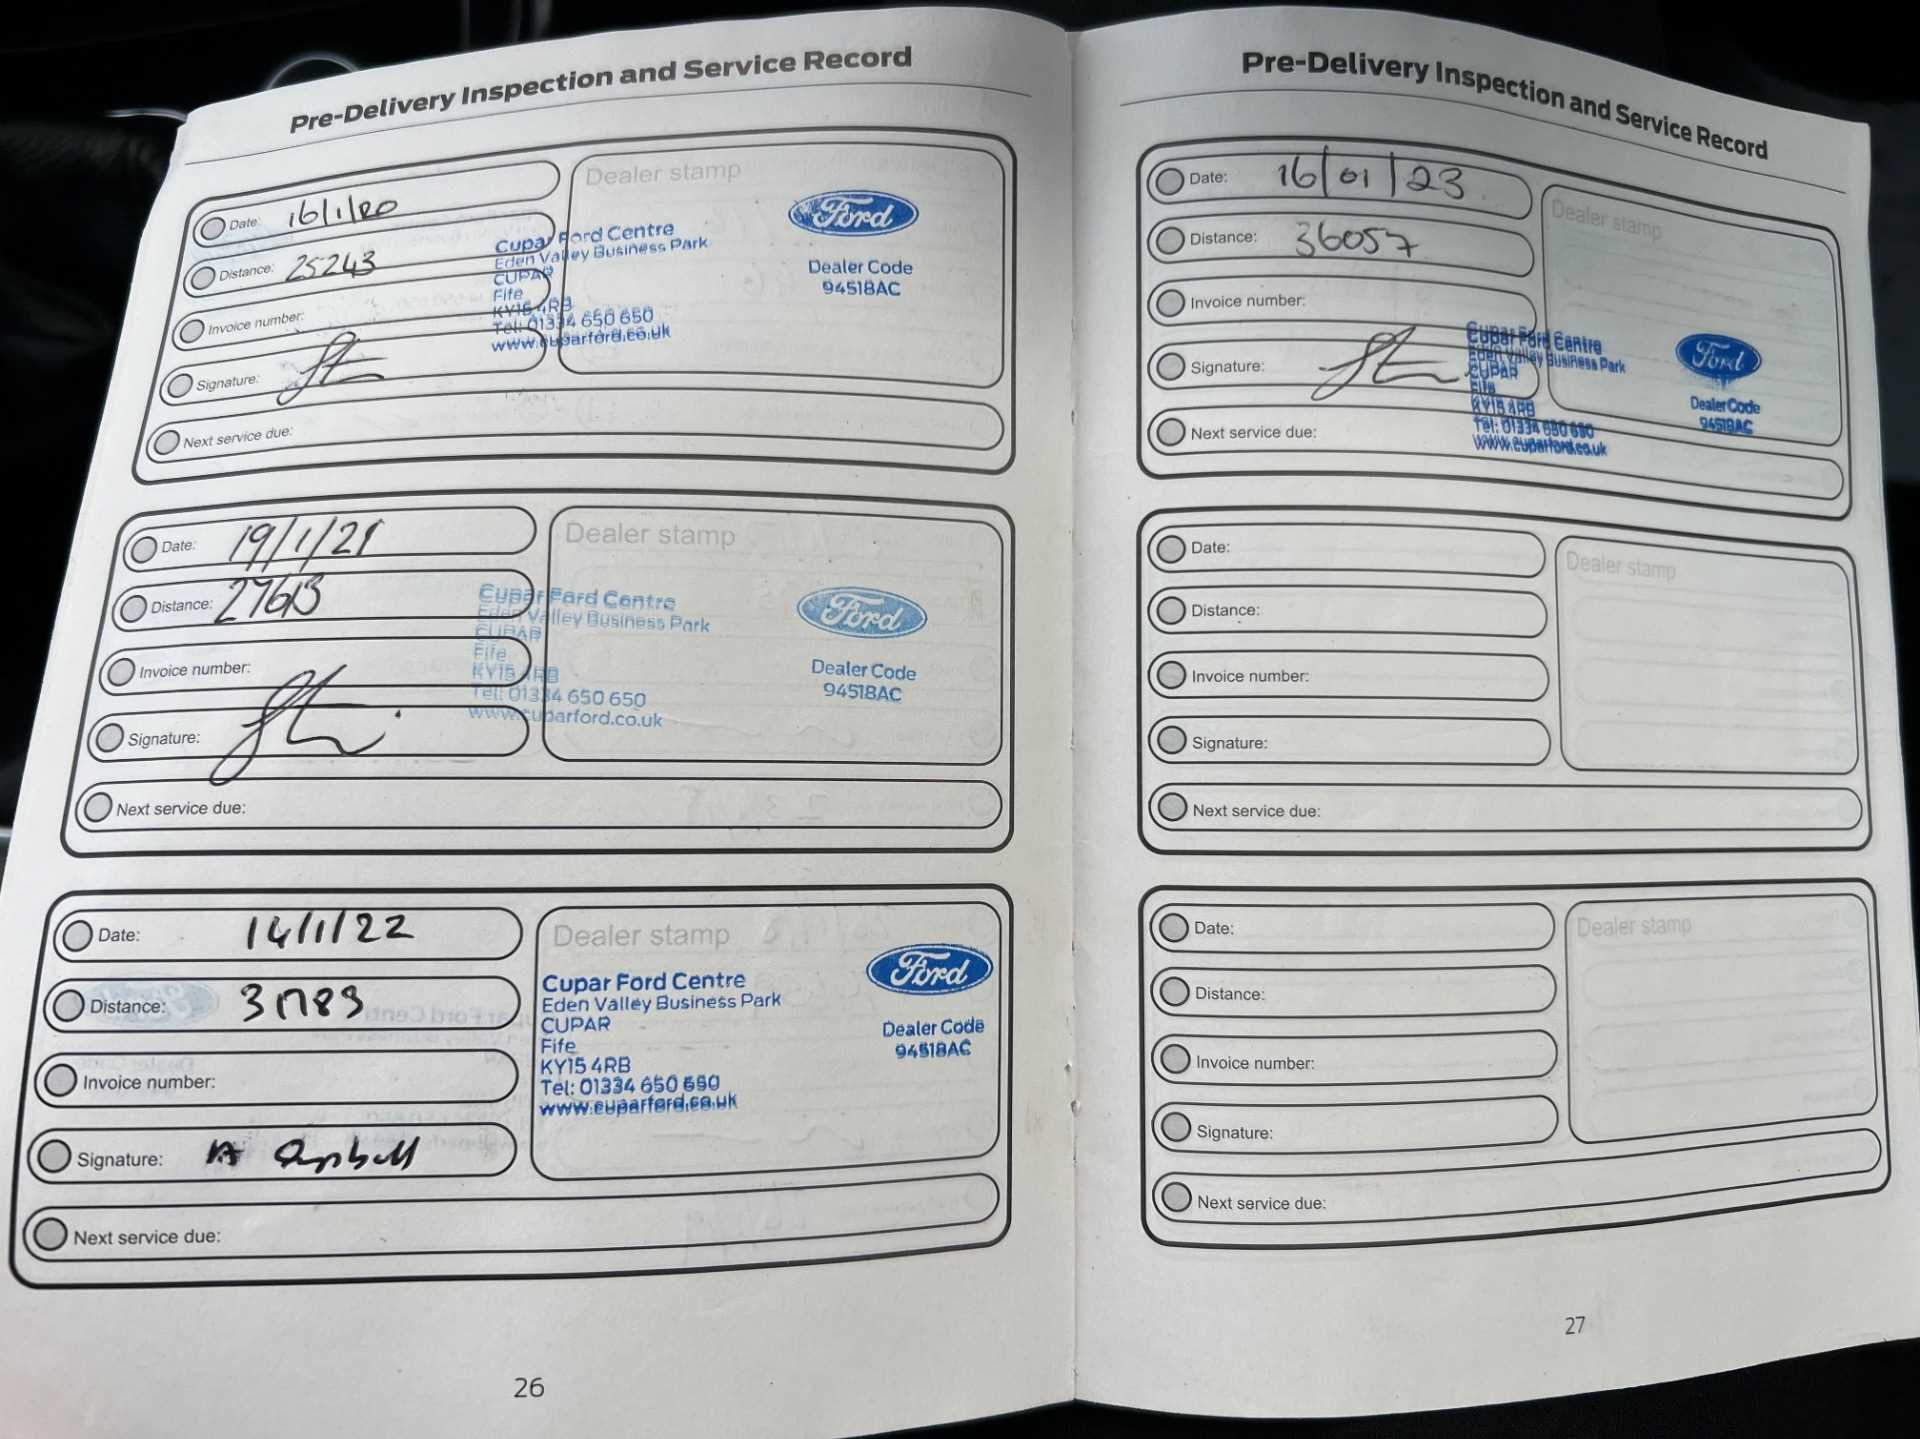 Pre-Delivery Inspection and Service Record
Date: 16/1/20
Distance: 25243
Invoice number:
Signature:
Next service due:
Dealer stamp
Cupar Ford Centre
Eden Valley Business Park
CUPAR
Fife
KY15 4RB
Tel: 01334 650 650
www.cuparford.co.uk
Ford
Dealer Code
94518AC
Date: 19/1/21
Distance: 27613
Invoice number:
Signature:
Next service due:
Dealer stamp
Cupar Ford Centre
Eden Valley Business Park
CUPAR
Fife
KY15 4RB
Tel: 01334 650 650
www.cuparford.co.uk
Ford
Dealer Code
94518AC
Date: 14/1/22
Distance: 31789
Invoice number:
Signature:
Next service due:
Dealer stamp
Cupar Ford Centre
Eden Valley Business Park
CUPAR
Fife
KY15 4RB
Tel: 01334 650 650
www.cuparford.co.uk
Ford
Dealer Code
94518AC
26
Pre-Delivery Inspection and Service Record
Date: 16/01/23
Distance: 36057
Invoice number:
Signature:
Next service due:
Dealer stamp
Cupar Ford Centre
Eden Valley Business Park
CUPAR
Fife
KY15 4RB
Tel: 01334 650 650
www.cuparford.co.uk
Ford
Dealer Code
94518AC
Date:
Distance:
Invoice number:
Signature:
Next service due:
Dealer stamp
Date:
Distance:
Invoice number:
Signature:
Next service due:
Dealer stamp
27